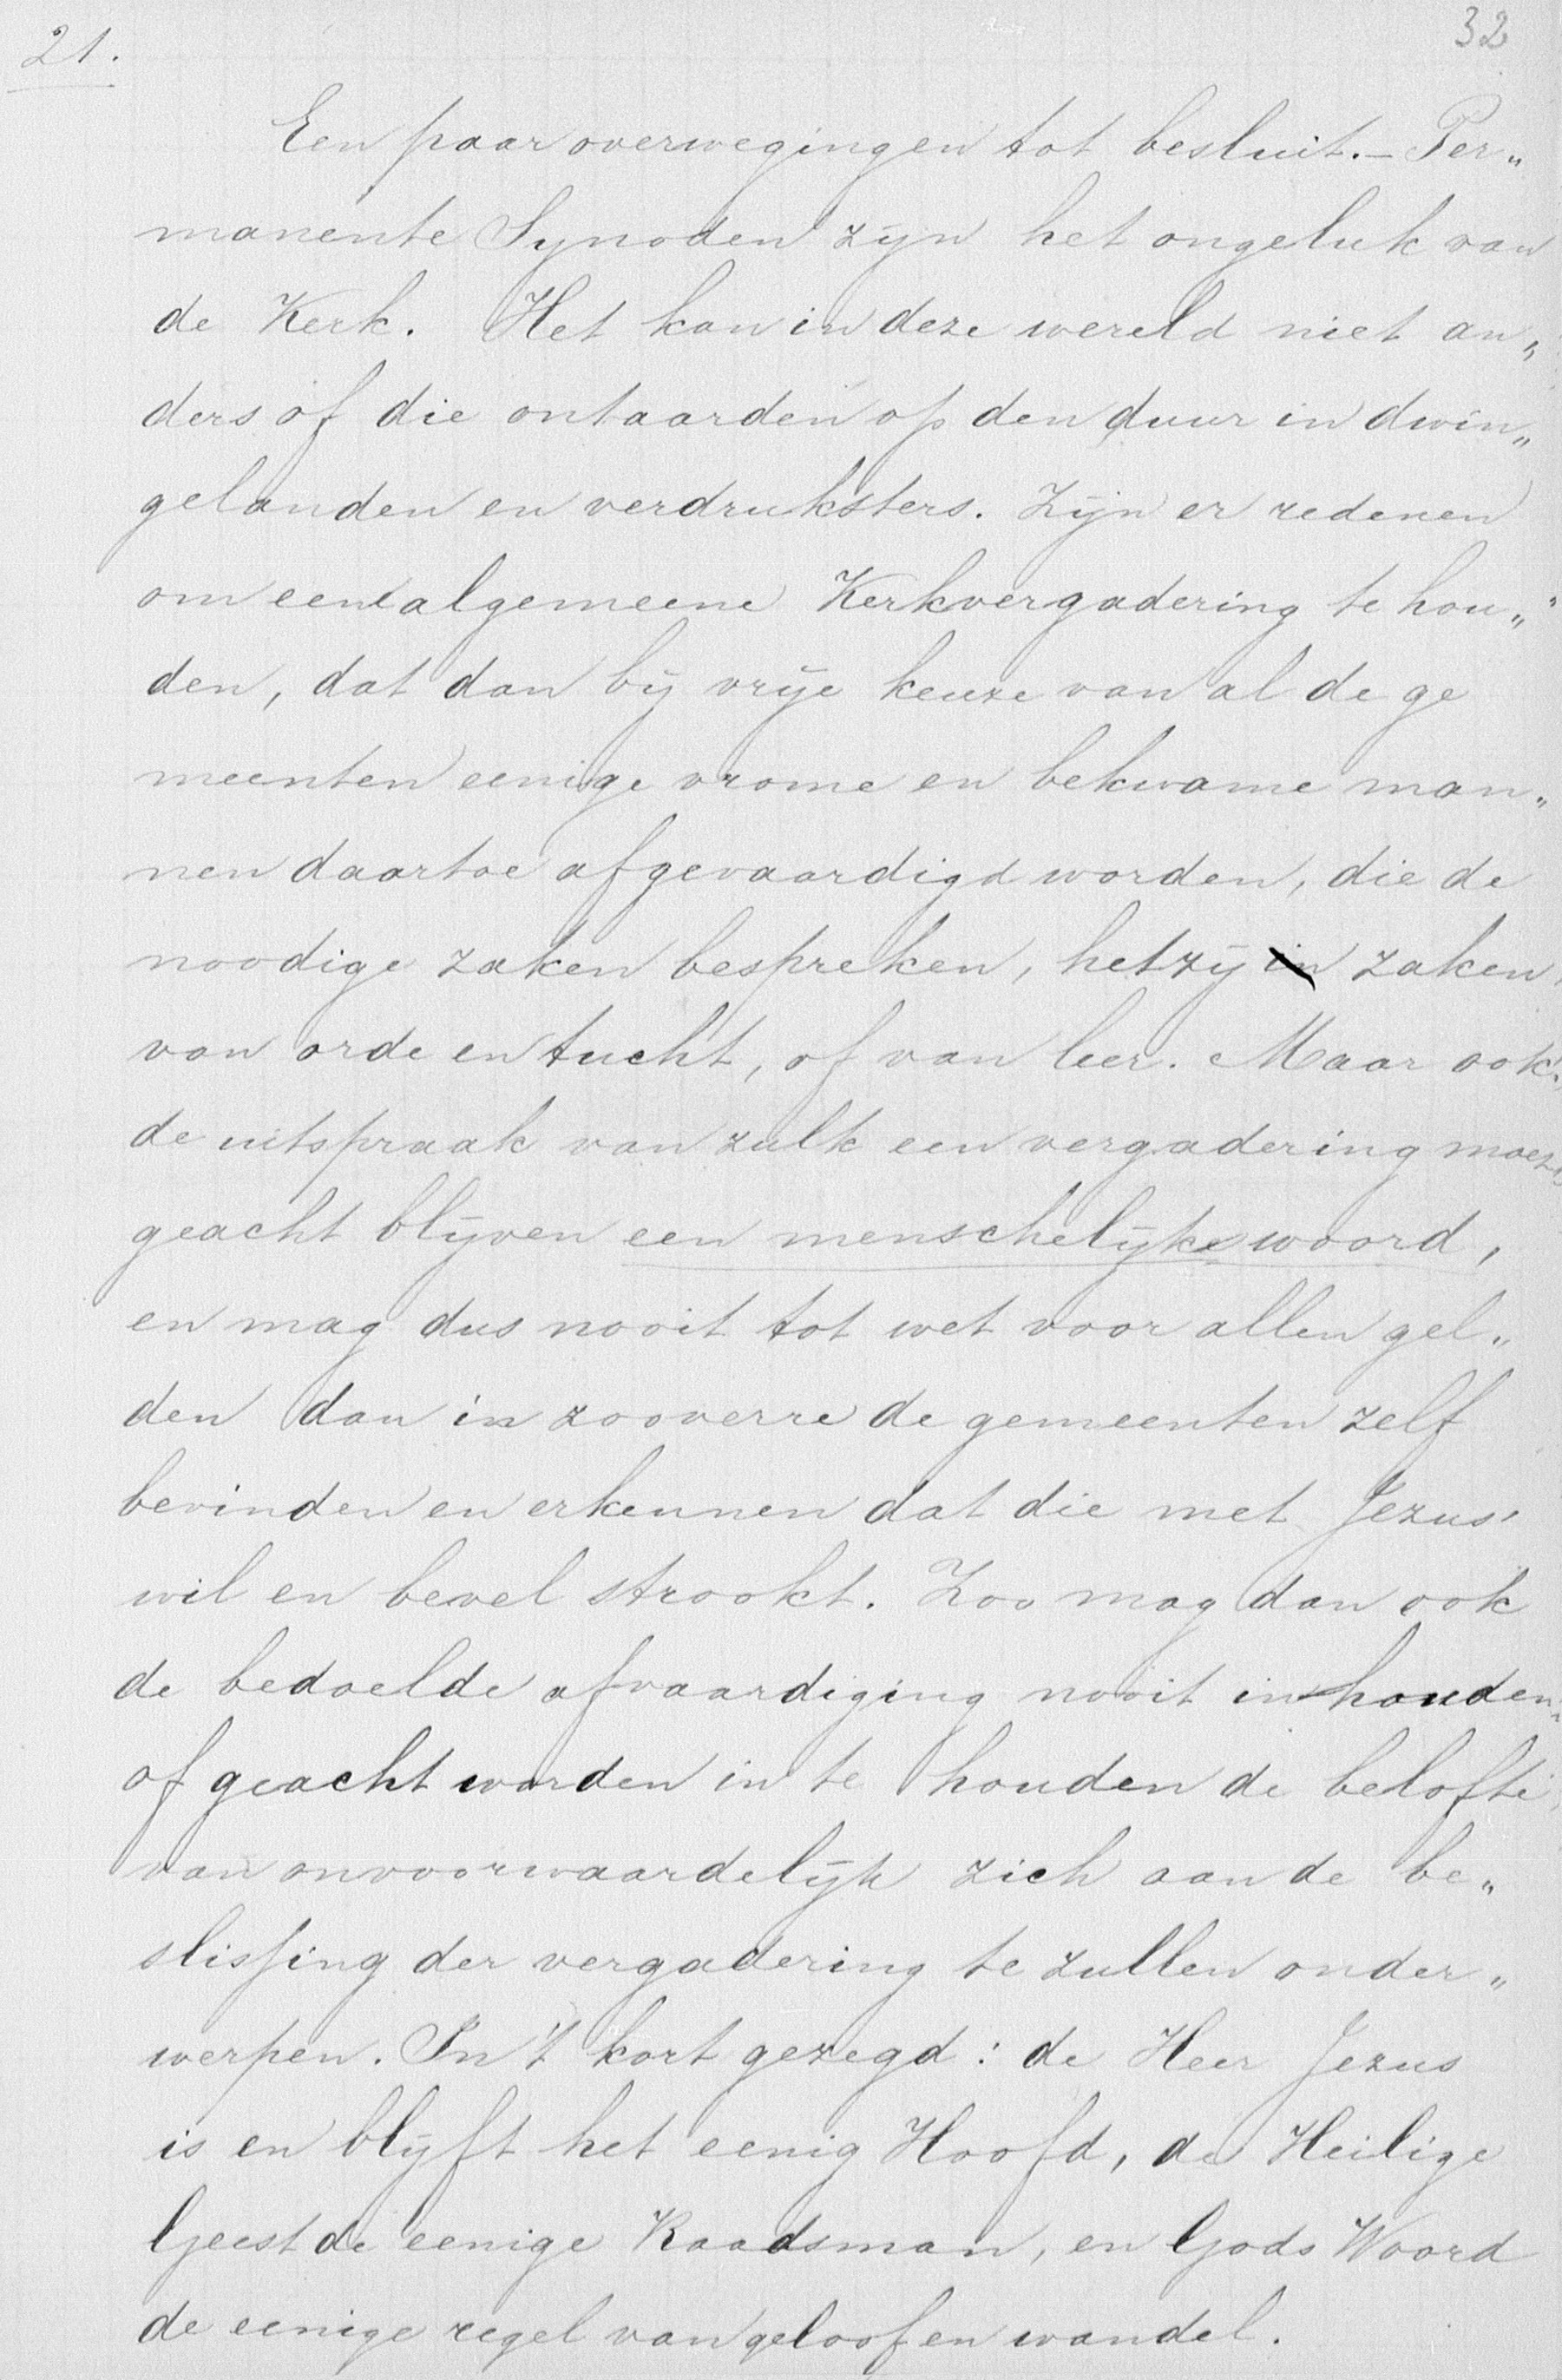 21.
32
Een paar overwegingen tot besluit. — Per„
manente Synoden zijn het ongeluk van
de Kerk. Het kan in deze wereld niet an„
ders of die ontaarden op den duur in dwin„
gelanden en verdruksters. Zijn er redenen
om eene algemeene Kerkvergadering te hou„
den, dat dan bij vrije keuze van al de ge
meenten eenige vrome en bekwame man„
nen daartoe afgevaardigd worden, die de
noodige zaken bespreken, hetzij in zaken
van orde en tucht, of van leer. Maar ook
de uitspraak van zulk een vergadering moet
geacht blijven een menschelijke woord,
en mag dus nooit tot wet voor allen gel„
den dan in zooverre de gemeenten zelf
bevinden en erkennen dat die met Jezus'
wil en bevel strookt. Zoo mag dan ook
de bedoelde afvaardiging nooit inhouden
of geacht worden in te houden de belofte
van onvoorwaardelijk zich aan de be„
slissing der vergadering te zullen onder„
werpen. In 't kort gezegd: de Heer Jezus
is en blijft het eenig Hoofd, de Heilige
Geest de eenige Raadsman, en Gods Woord
de eenige regel van geloof en wandel.